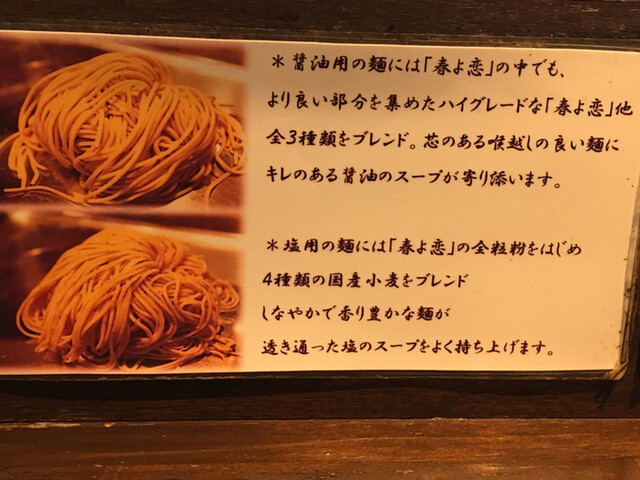 ＊醤油用の麺には「春よ恋」の中でも、
より良い部分を集めたハイグレードな「春よ恋」他
全3種類をブレンド。芯のある喉越しの良い麺に
キレのある醤油のスープが寄り添います。
＊塩用の麺には「春よ恋」の全粒粉をはじめ
4種類の国産小麦をブレンド
しなやかで香り豊かな麺が
透き通った塩のスープをよく持ち上げます。